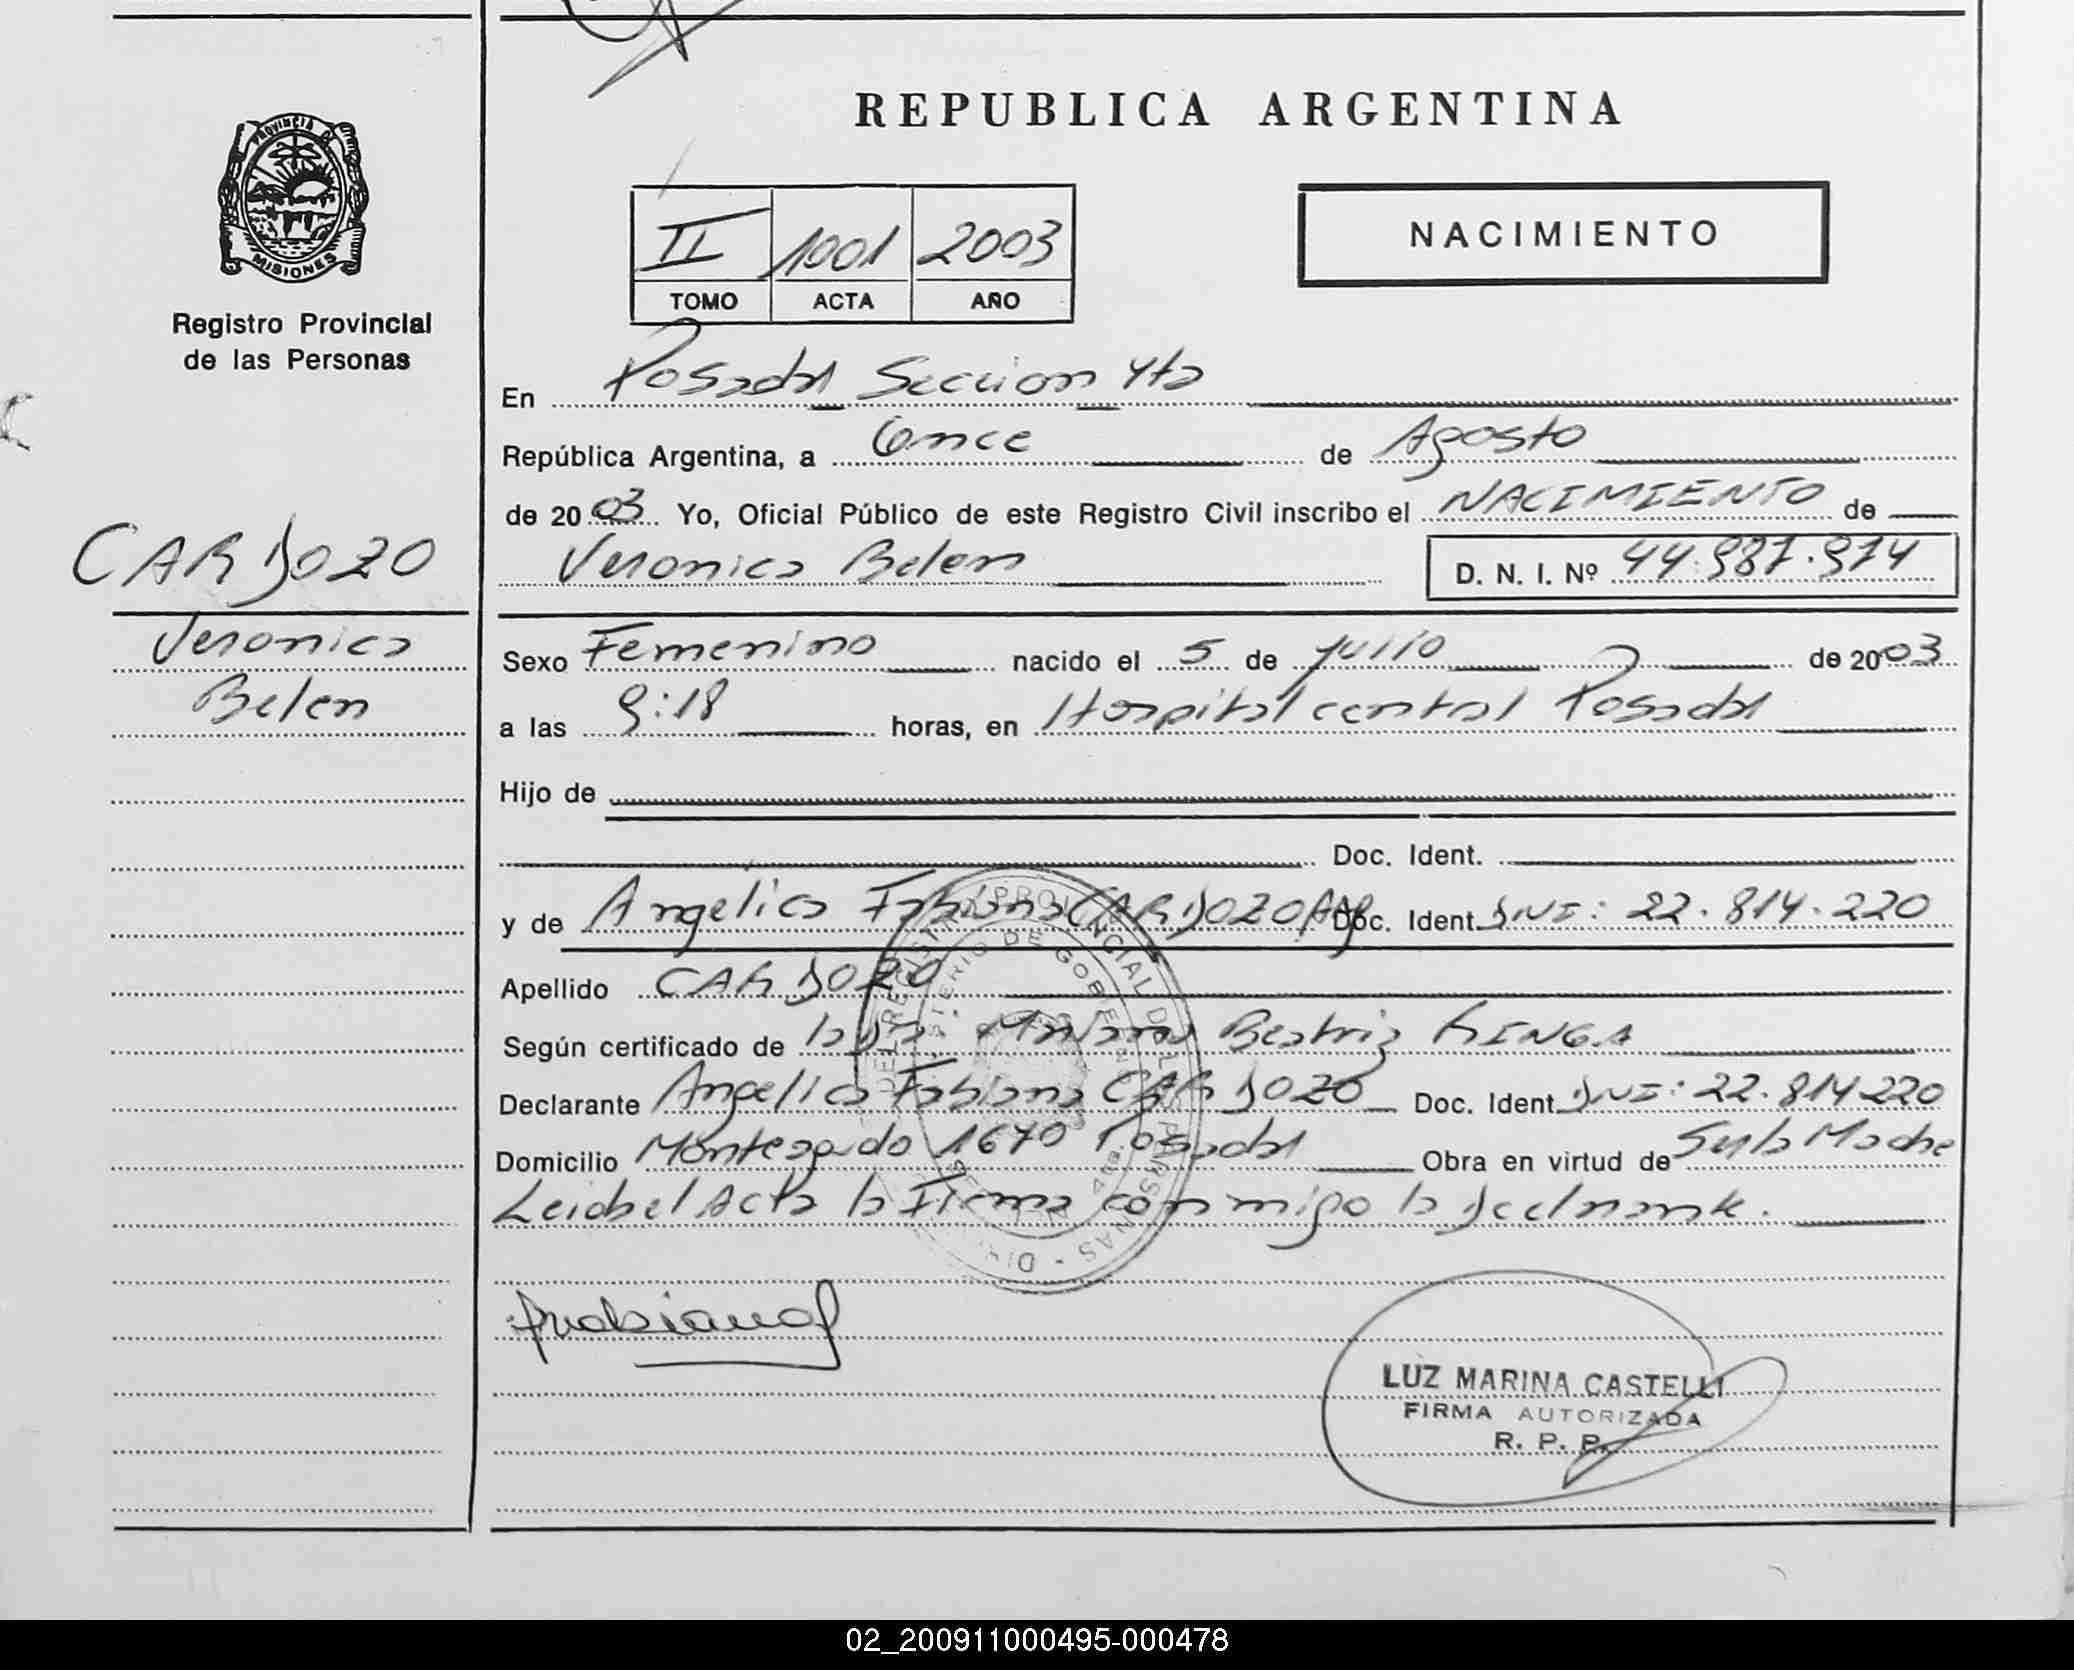 REPUBLICA ARGENTINA
PROVINCIA DE
MISIONES
Registro Provincial
de las Personas
II 1001 2003
TOMO ACTA AÑO
NACIMIENTO
En Posadas Seccion 4ta
República Argentina, a Once de Agosto
de 2003 Yo, Oficial Público de este Registro Civil inscribo el NACIMIENTO de
Veronica Belen D. N. I. Nº 44.987.974
CARDOZO
Veronica
Belen
Sexo Femenino nacido el 5 de Julio de 2003
a las 9:18 horas, en Hospital central Posadas
Hijo de
Doc. Ident.
y de Angelica Fabiana CARDOZO Doc. Ident. DNI: 22.814.220
Apellido CARDOZO
Según certificado de la Beatriz KINGA
Declarante Angelica Fabiana CARDOZO Doc. Ident. DNI: 22.814220
Domicilio Monteagudo 1670 Posadas Obra en virtud de Ser la Madre
Leida el Acta la Firma conmigo la declarante.
LUZ MARINA CASTELLI
FIRMA AUTORIZADA
R. P. P.
02_200911000495-000478